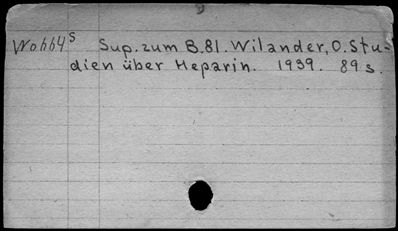 Wohh4s Sup. zum B.81. Wilander, O. Stu-
dien über Heparin. 1939. 89 s.